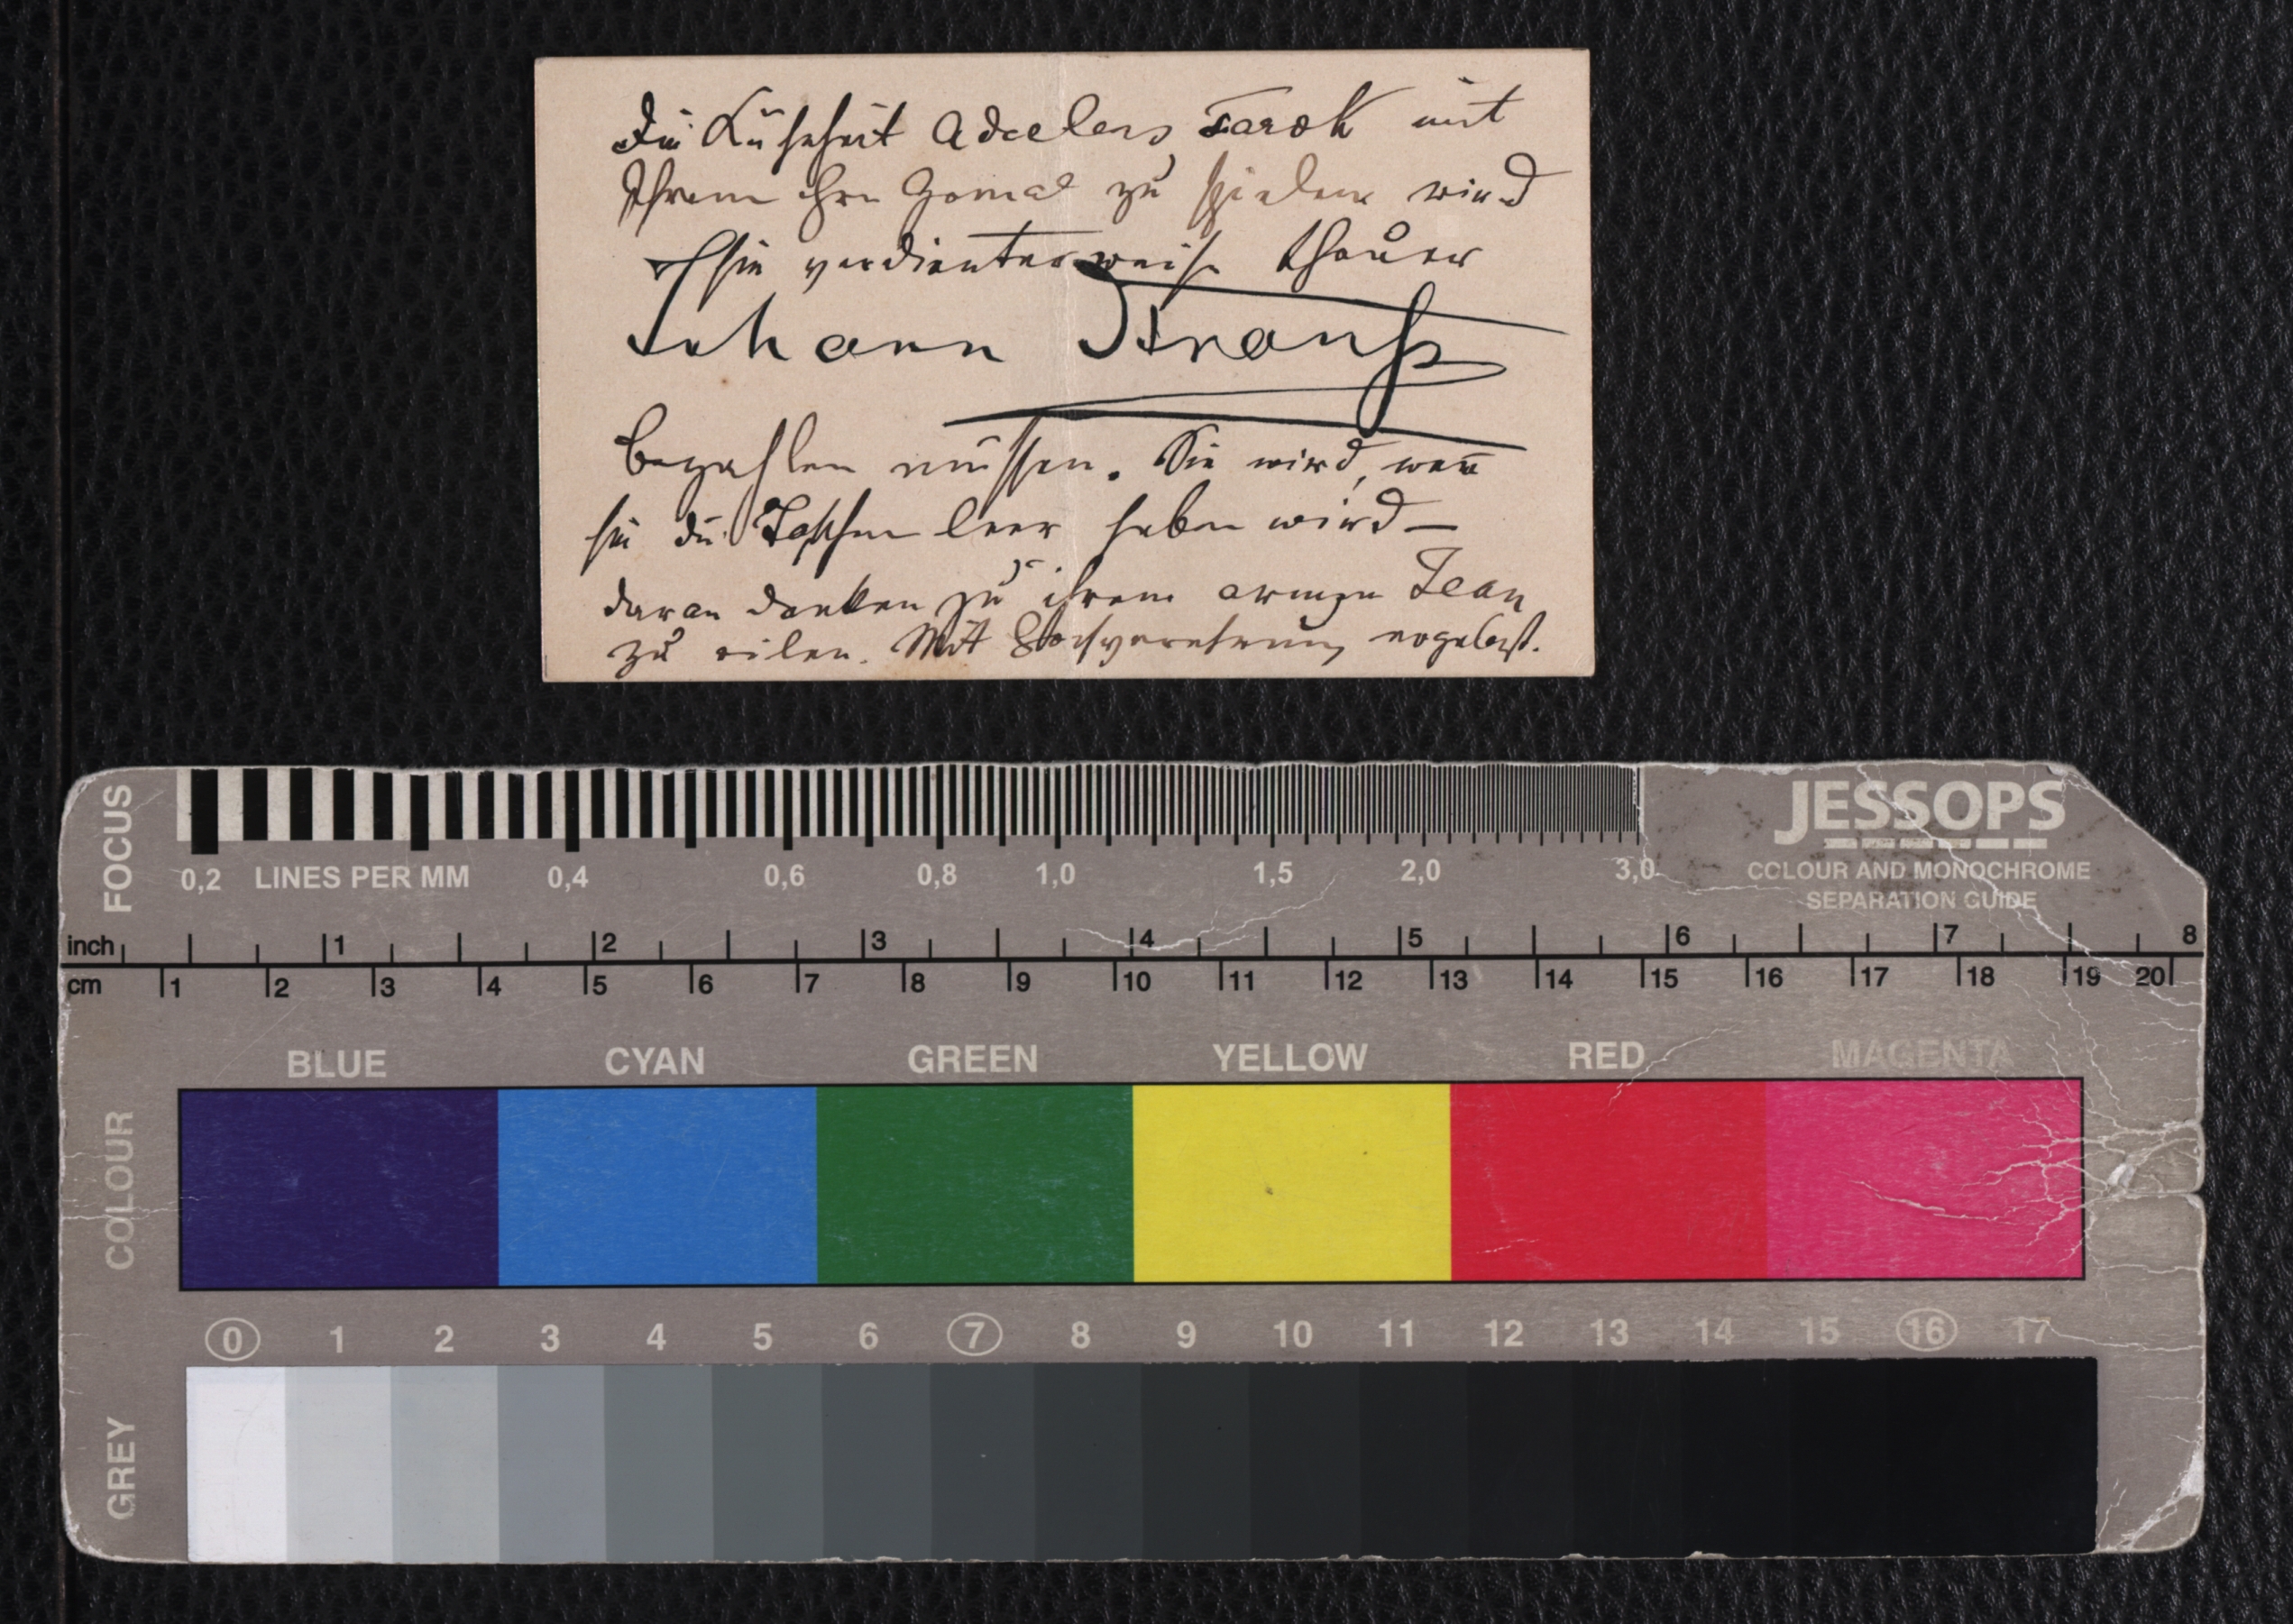 Die Kühnheit Adeelens Tarok mit
Ihrem Hrn Gemal zu spielen wird
sie verdienterweise theuer
Johann Strauß
bezahlen müssen. Sie wird, wen̄
sie die Taschen leer haben wird –
daran denken zu ihrem armen Jean
zu eilen. Mit Hochverehrung ergebenst.
FOCUS
0,2 LINES PER MM 0,4 0,6 0,8 1,0 1,5 2,0 3,0
JESSOPS
COLOUR AND MONOCHROME
SEPARATION GUIDE
inch 1 2 3 4 5 6 7 8
cm 1 2 3 4 5 6 7 8 9 10 11 12 13 14 15 16 17 18 19 20
COLOUR
BLUE CYAN GREEN YELLOW RED MAGENTA
0 1 2 3 4 5 6 7 8 9 10 11 12 13 14 15 16 17
GREY